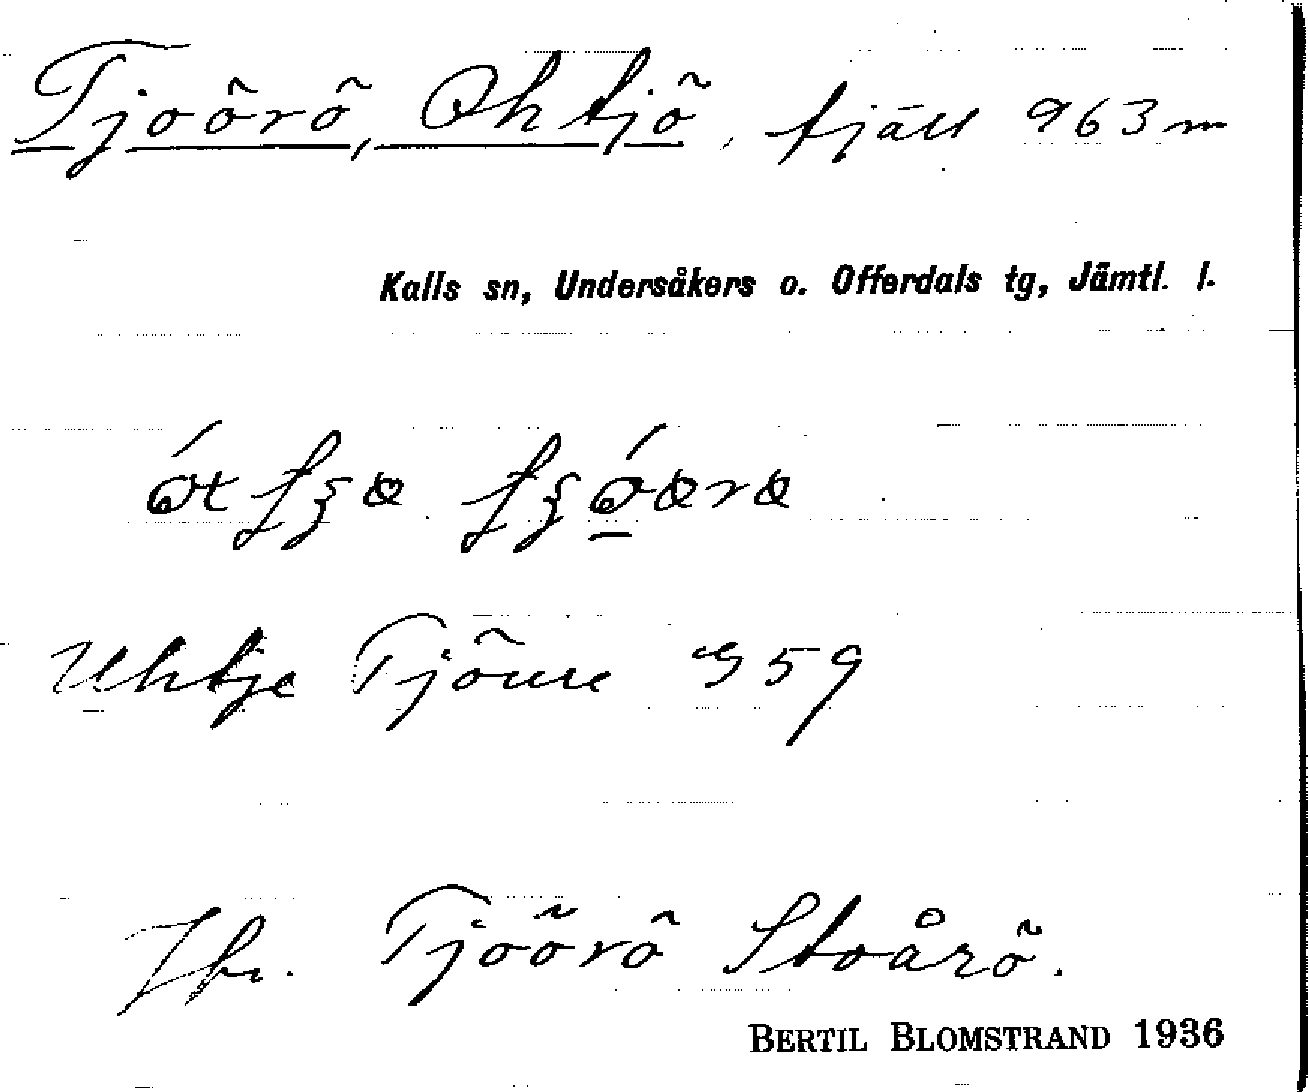 Tjoörö, Ohtjö, fjäll 963 m
Kalls sn, Undersåkers o. Offerdals tg, Jämtl. l.
Uhtje Tjöure G 59
Jfr. Tjoörö Stoårö.
BERTIL BLOMSTRAND 1936